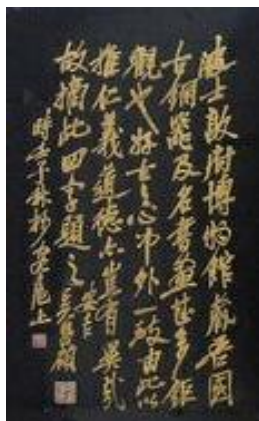 波士敦府博物館藏吾國
古銅器及名書畫甚多鉅
觀也好古之心中外一致由此以
推仁義道德亦豈有異哉
故摘此四字題之安吉吳昌碩
時壬子秋杪客扈上